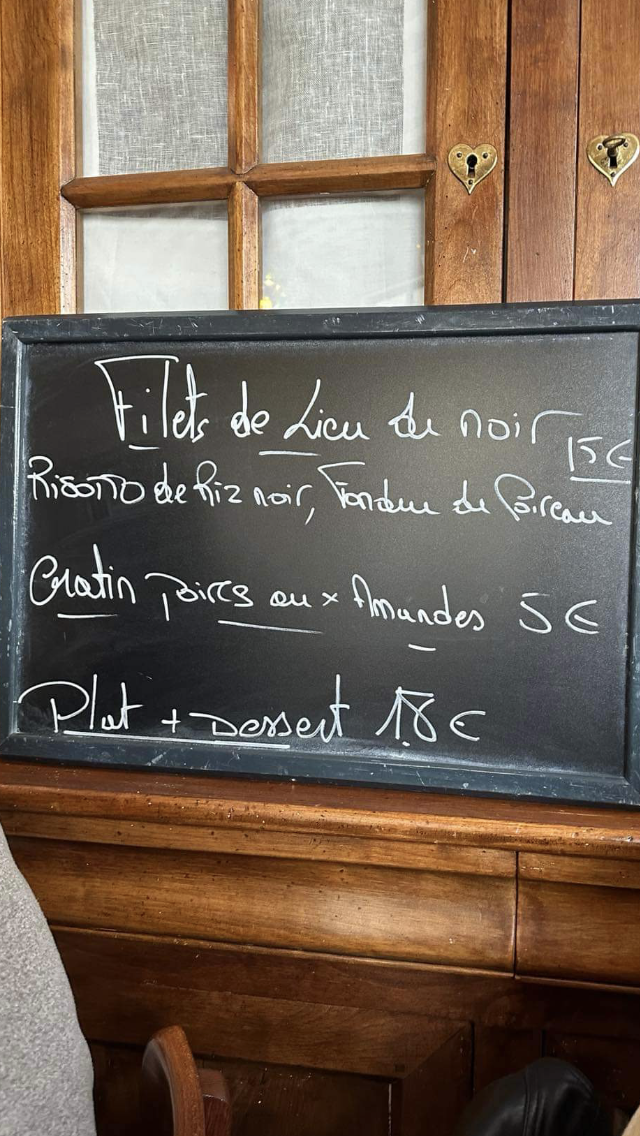 Filets de Lieu du noir
15€
Risotto de Riz noir, Fondue de Poireau
Gratin Poires aux Amandes 5€
Plat + Dessert 18€